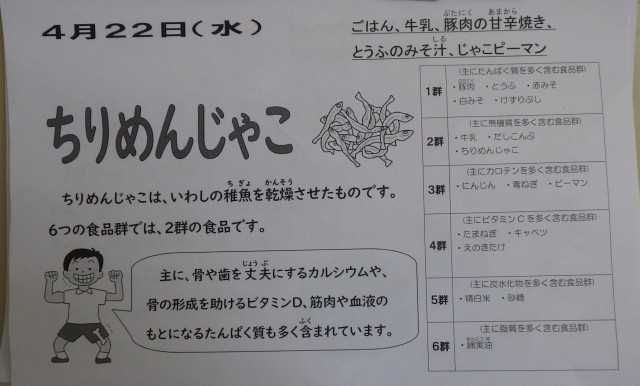 4月22日(水)
ごはん、牛乳、豚肉の甘辛焼き、
とうふのみそ汁、じゃこピーマン
ちりめんじゃこ
ちりめんじゃこは、いわしの稚魚を乾燥させたものです。
6つの食品群では、2群の食品です。
主に、骨や歯を丈夫にするカルシウムや、
骨の形成を助けるビタミンD、筋肉や血液の
もとになるたんぱく質も多く含まれています。
1群
(主にたんぱく質を多く含む食品群)
・豚肉 ・とうふ ・赤みそ
・白みそ ・けずりぶし
2群
(主に無機質を多く含む食品群)
・牛乳 ・だしこんぶ
・ちりめんじゃこ
3群
(主にカロテンを多く含む食品群)
・にんじん ・青ねぎ ・ピーマン
4群
(主にビタミンCを多く含む食品群)
・たまねぎ ・キャベツ
・えのきたけ
5群
(主に炭水化物を多く含む食品群)
・精白米 ・砂糖
6群
(主に脂質を多く含む食品群)
・綿実油